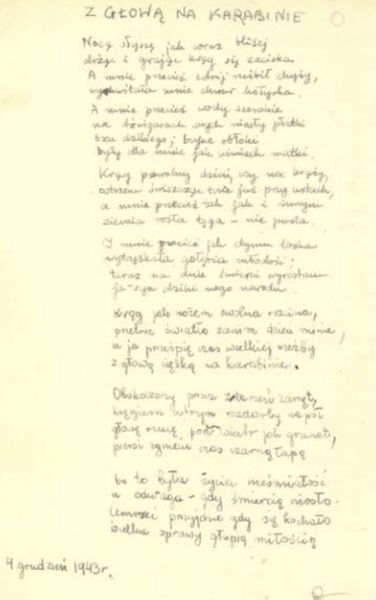 Z GŁOWĄ NA KARABINIE
Nocą słyszę jak coraz bliżej
drżąc i grając krąg się zaciska
A mnie przecież zdrój rzeźbił chyży,
wyhuśtała mnie chmur kołyska.
A mnie przecież wody szerokie
na dźwigarach swych niosły płatki
bzu dzikiego; bujne obłoki
były dla mnie jak uśmiech matki.
Krąg powolny dzień czy noc krąży,
ostrzem świszcząc tnie już przy ustach,
a mnie przecież tak jak i innym
ziemia rosła tęga - nie pusta.
I mnie przecież jak dymu laska
wytryskała gołębia młodość;
teraz na dnie śmierci wyrastam
ja - syn dziki mego narodu.
Krąg jak nożem z wolna rozcina,
przetnie światło zanim dzień minie,
a ja prześpię czas wielkiej rzeźby
z głową ciężką na karabinie.
Obskoczony przez zdarzeń zamęt,
kręgiem ostrym rozdarty na pół
głowę rzucę pod wiatr jak granat,
pierś zgniecie czas czarną łapą
bo to była życia nieśmiałość
a odwaga - gdy śmiercią niosło.
Umrzeć przyjdzie gdy się kochało
wielkie sprawy głupią miłością
4 grudzień 1943 r.